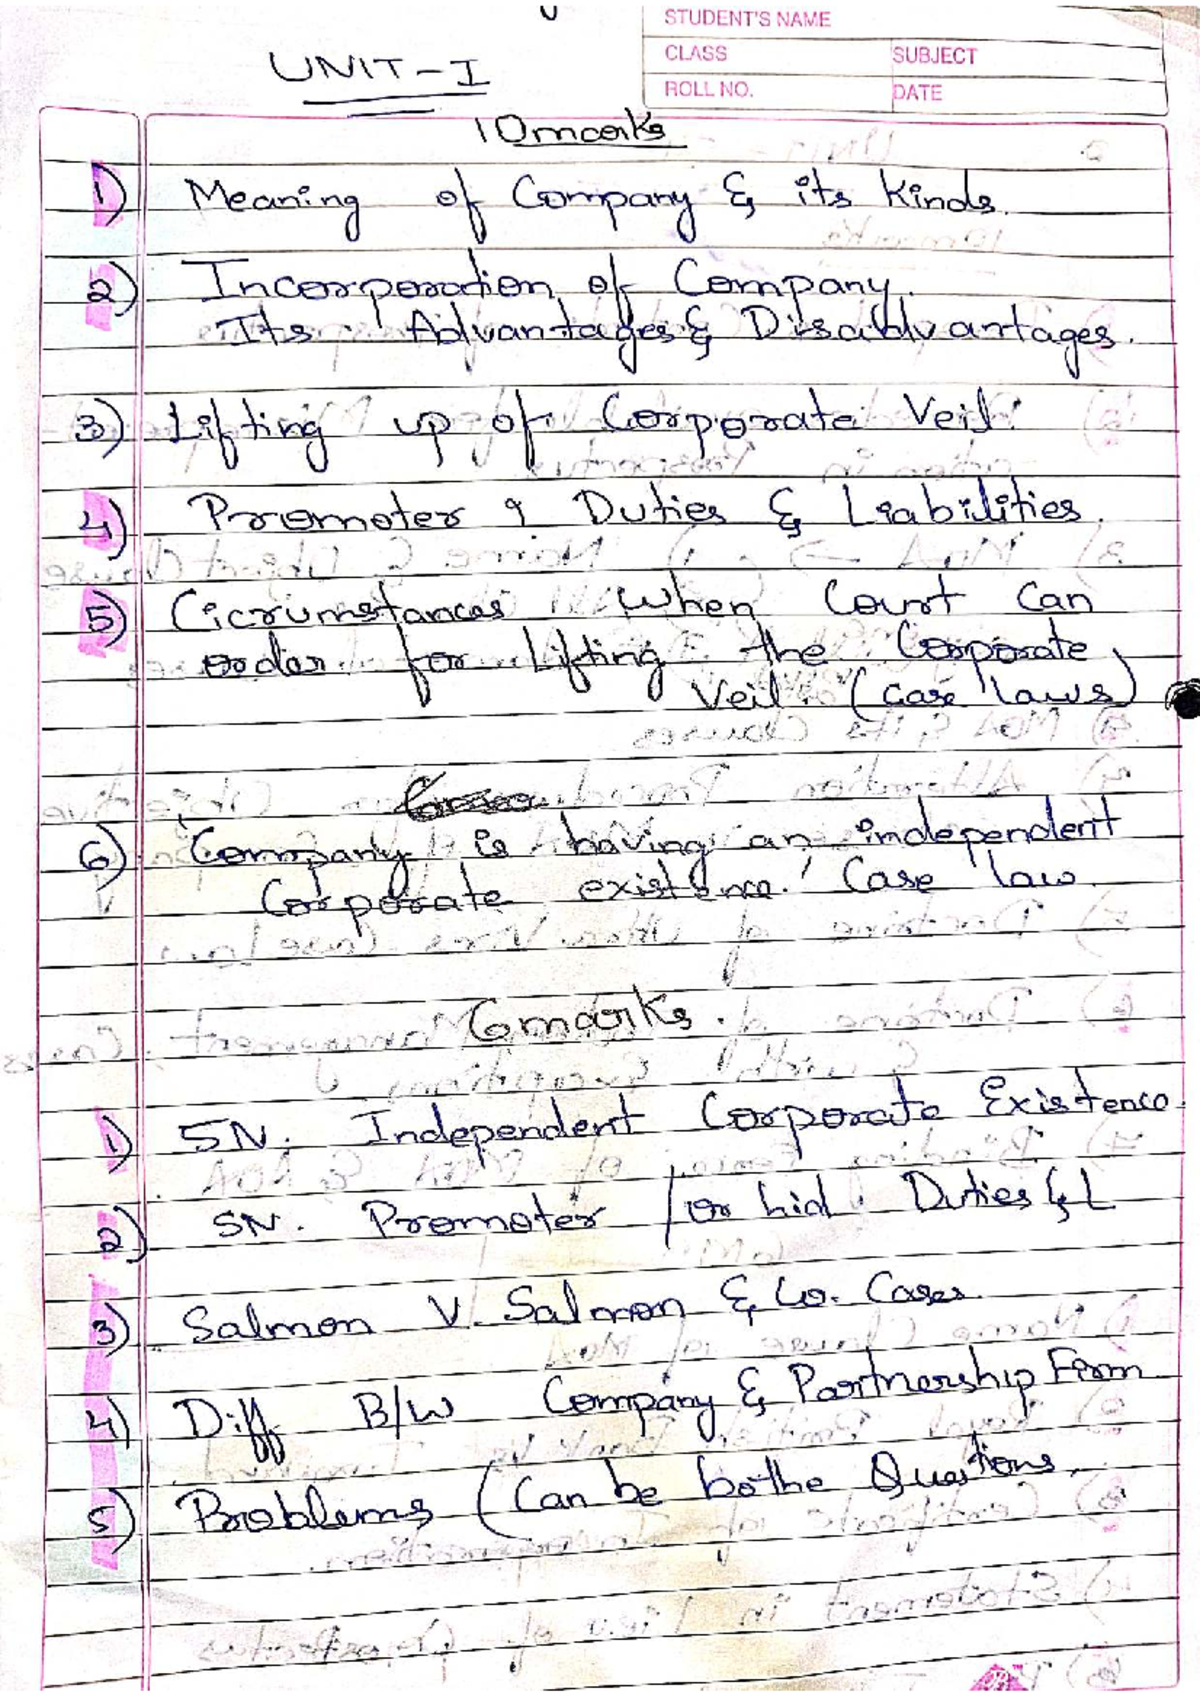 STUDENT'S NAME
CLASS SUBJECT
ROLL NO. DATE
UNIT-I
10marks
1) Meaning of Company & its Kinds.
2) Incorporation of Company.
Its Advantages & Disadvantages.
3) Lifting up of Corporate Veil.
4) Promoter, Duties & Liabilities.
5) Cicrumstances when Court Can
order for Lifting the Corporate
Veil. (Case laws)
6) Company is having an independent
Corporate existence. Case law.
6marks.
1) SN. Independent Corporate Existence.
2) SN. Promoter / or Duties & L
3) Salmon V. Salmon & Co. Cases.
4) Diff B/W Company & Partnership Firm
5) Problems (Can be bothe Questions.